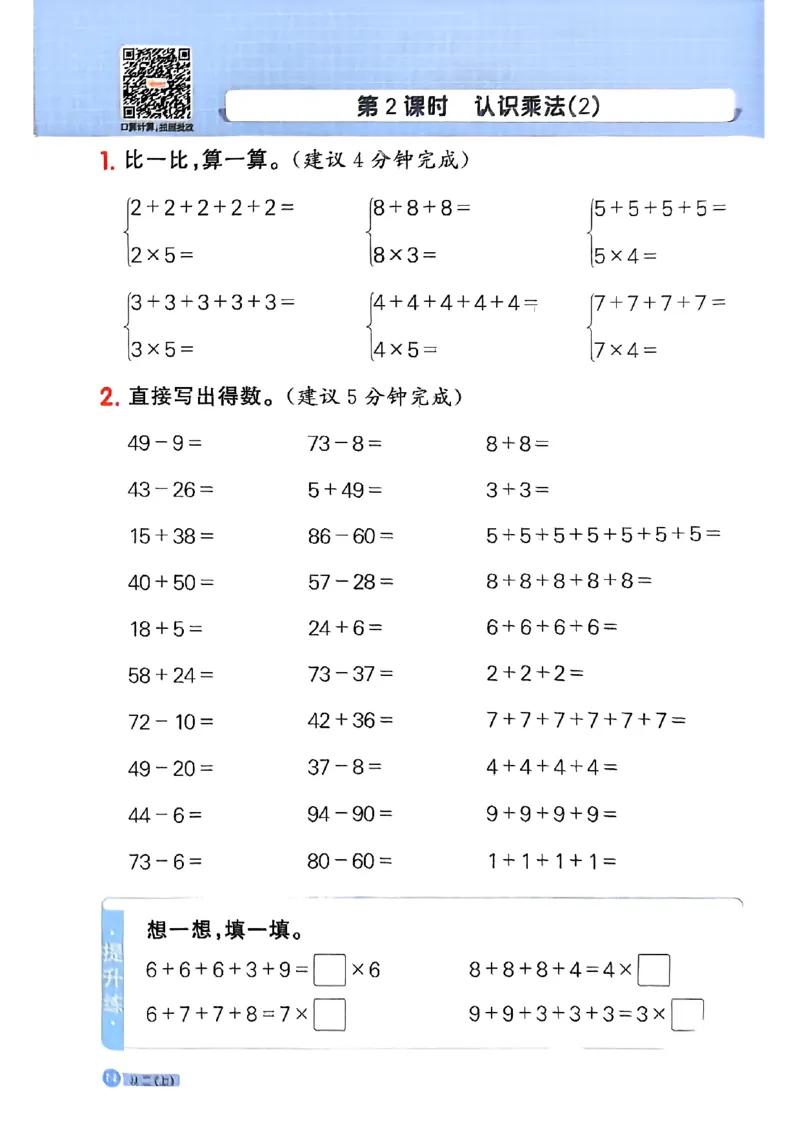 口算计算,扭圈批改
第2课时 认识乘法(2)
1. 比一比,算一算。(建议4分钟完成)
2+2+2+2+2= 8+8+8= 5+5+5+5=
2×5= 8×3= 5×4=
3+3+3+3+3= 4+4+4+4+4= 7+7+7+7=
3×5= 4×5= 7×4=
2. 直接写出得数。(建议5分钟完成)
49-9= 73-8= 8+8=
43-26= 5+49= 3+3=
15+38= 86-60= 5+5+5+5+5+5+5=
40+50= 57-28= 8+8+8+8+8=
18+5= 24+6= 6+6+6+6=
58+24= 73-37= 2+2+2=
72-10= 42+36= 7+7+7+7+7+7=
49-20= 37-8= 4+4+4+4=
44-6= 94-90= 9+9+9+9=
73-6= 80-60= 1+1+1+1=
·提升练·
想一想,填一填。
6+6+6+3+9=□×6 8+8+8+4=4×□
6+7+7+8=7×□ 9+9+3+3+3=3×□
二(上)